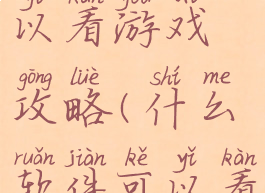 yǐ kàn yóu xì
以看游戏
gōng lüè shí me
攻略(什么
ruǎn jiàn kě yǐ kàn
软件可以看